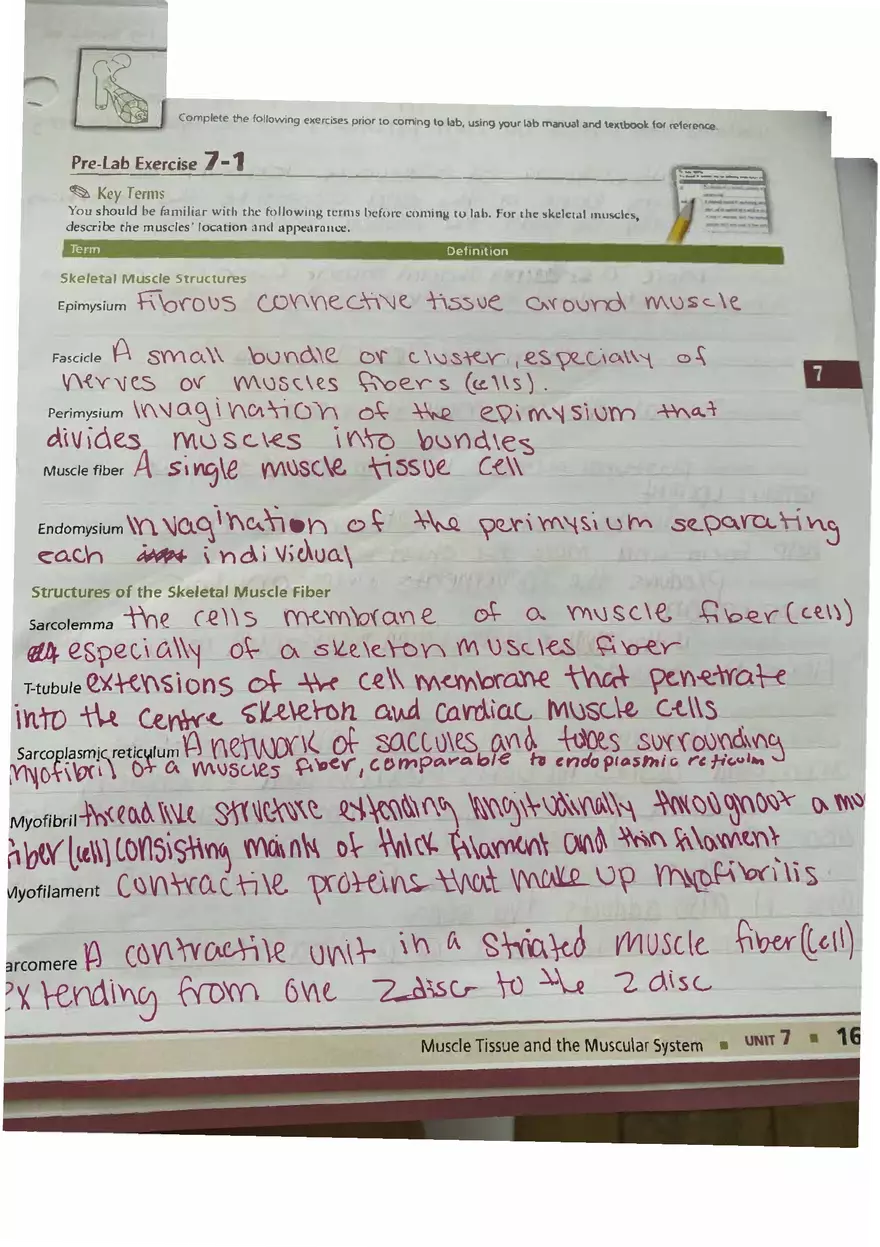 Complete the following exercises prior to coming to lab, using your lab manual and textbook for reference.
Pre-Lab Exercise 7-1
Key Terms
You should be familiar with the following terms before coming to lab. For the skeletal muscles,
describe the muscles' location and appearance.
Term Definition
Skeletal Muscle Structures
Epimysium Fibrous connective tissue around muscle
Fascicle A small bundle or cluster, especially of
nerves or muscles fibers (cells).
7
Perimysium Invagination of the epimysium that
divides muscles into bundles
Muscle fiber A single muscle tissue cell
Endomysium Invagination of the perimysium separating
each individual
Structures of the Skeletal Muscle Fiber
Sarcolemma the cells membrane of a muscle fiber (cell)
especially of a skeleton muscles fiber
T-tubule extensions of the cell membrane that penetrate
into the centre skeleton and cardiac muscle cells
Sarcoplasmic reticulum A network of saccules and tubes surrounding
myofibril of a muscles fiber, comparable to endoplasmic reticulm
Myofibril threadlike structure extending longitudinally throughoot a mu
fiber (cell) consisting mainly of thick filament and thin filament
Myofilament contractile proteins that make up myofibrilis
arcomere A contractile unit in a striated muscle fiber (cell)
extending from one Z disc to the Z disc
Muscle Tissue and the Muscular System ■ UNIT 7 ■ 16